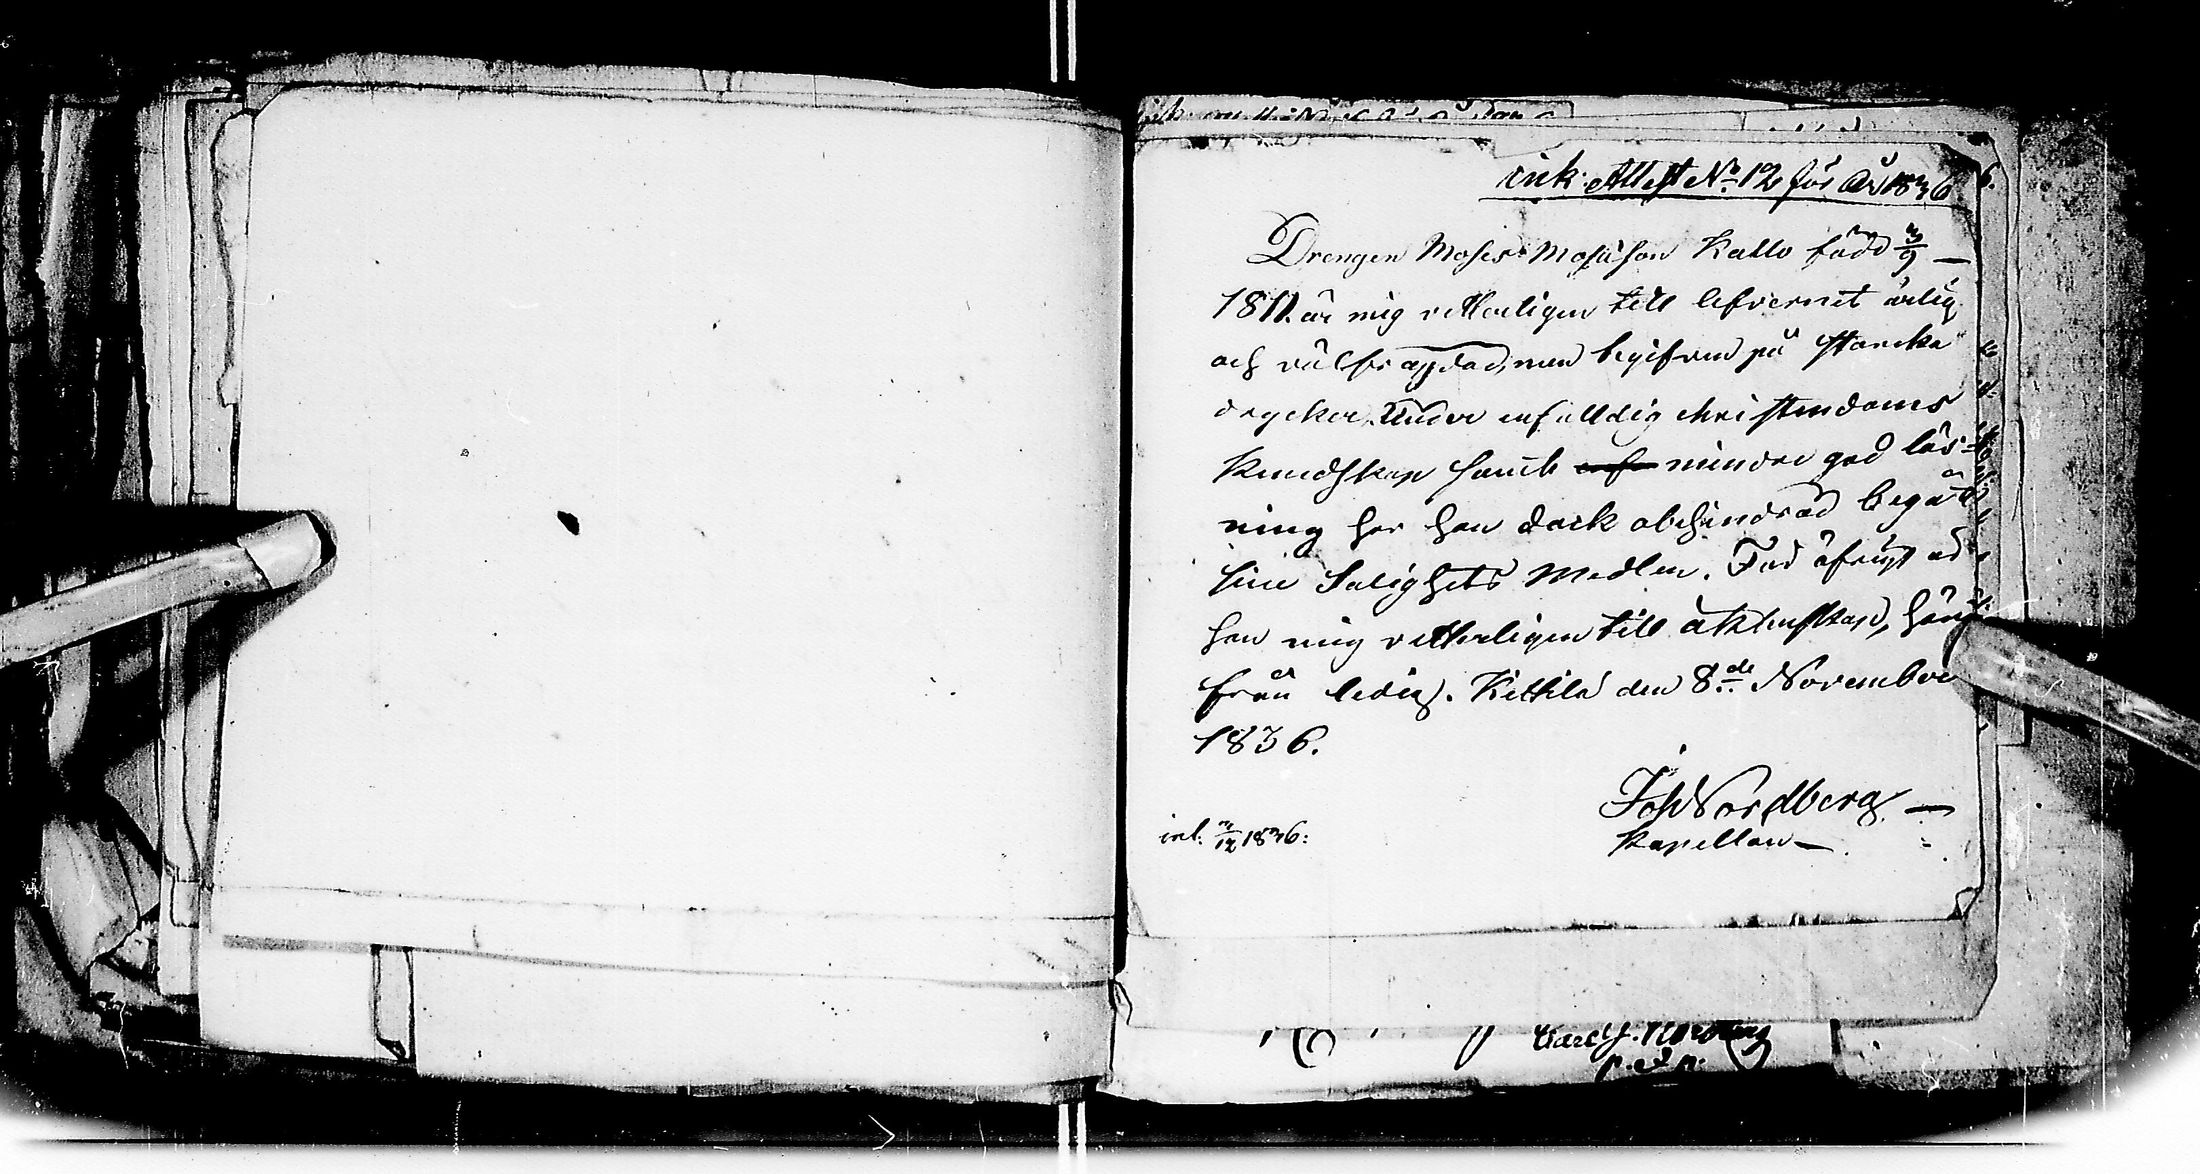 ink. Attest No 12 för År 1836
Drengen Moses Mosisson Kallo född 3/9 —
1811. är mig vetterligen till lefvernet ärlig
och välfrägdad, men begifven på starcka
drycker. Under enfalldig christendoms
kundskap samt mindre god läs-
ning har han dock obehindrad begått
sine Salighets Medlen. För öfrigt är
han mig vetterligen till äktenskap, här
från ledig. Kittilä den 8de November
1836.
Joh Nordberg —
Kapellan —
inl. 3/12 1836: